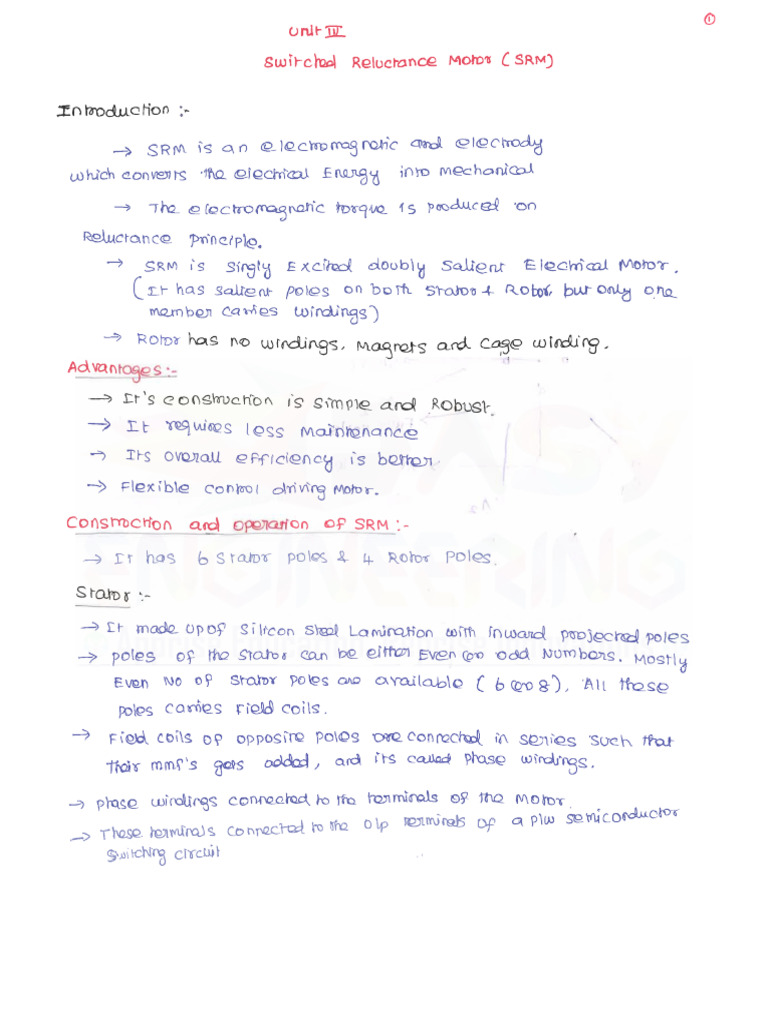 ①
Unit IV
Switched Reluctance Motor (SRM)
Introduction :-
→ SRM is an electromagnetic and electrody
which converts the electrical Energy into mechanical
→ The electromagnetic torque is produced on
Reluctance principle.
→ SRM is singly Excited doubly salient Electrical Motor.
(It has salient poles on both stator & Rotor, but only one
member carries windings)
→ Rotor has no windings, Magnets and cage winding.
Advantages :-
→ It's construction is simple and Robust.
→ It requires less Maintenance
→ Its overall efficiency is better
→ Flexible control driving Motor.
Construction and operation of SRM :-
→ It has 6 Stator poles & 4 Rotor Poles.
Stator :-
→ It made up of Silicon Steel Lamination with inward projected poles
→ poles of the stator can be either Even (or) odd Numbers. Mostly
Even No of stator poles are available (6 (or) 8), All these
poles carries Field coils.
→ Field coils of opposite poles are connected in series such that
their mmf's gets added, and its called Phase windings.
→ phase windings connected to the terminals of the Motor.
→ These terminals connected to the o/p terminals of a p/w semiconductor
switching circuit
ENGINEERING